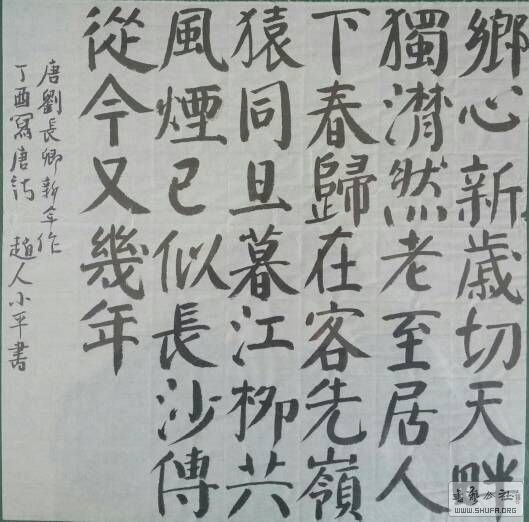 鄉心新歲切天畔
獨潸然老至居人
下春歸在客先嶺
猿同旦暮江柳共
風煙已似長沙傅
從今又幾年
唐劉長卿新年作
丁酉寫唐詩 趙人小平書
書藝公社
WWW.SHUFA.ORG